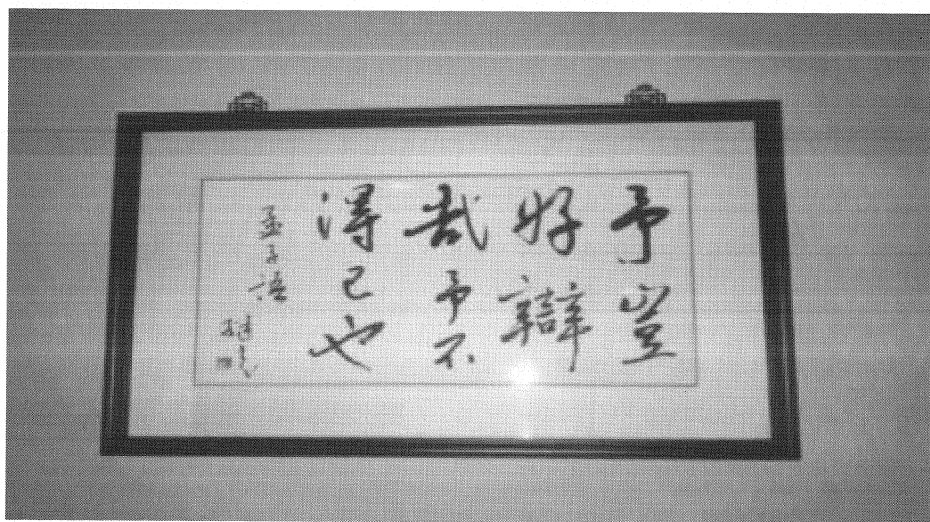 予豈
好辯
哉予不
得已也
孟子語